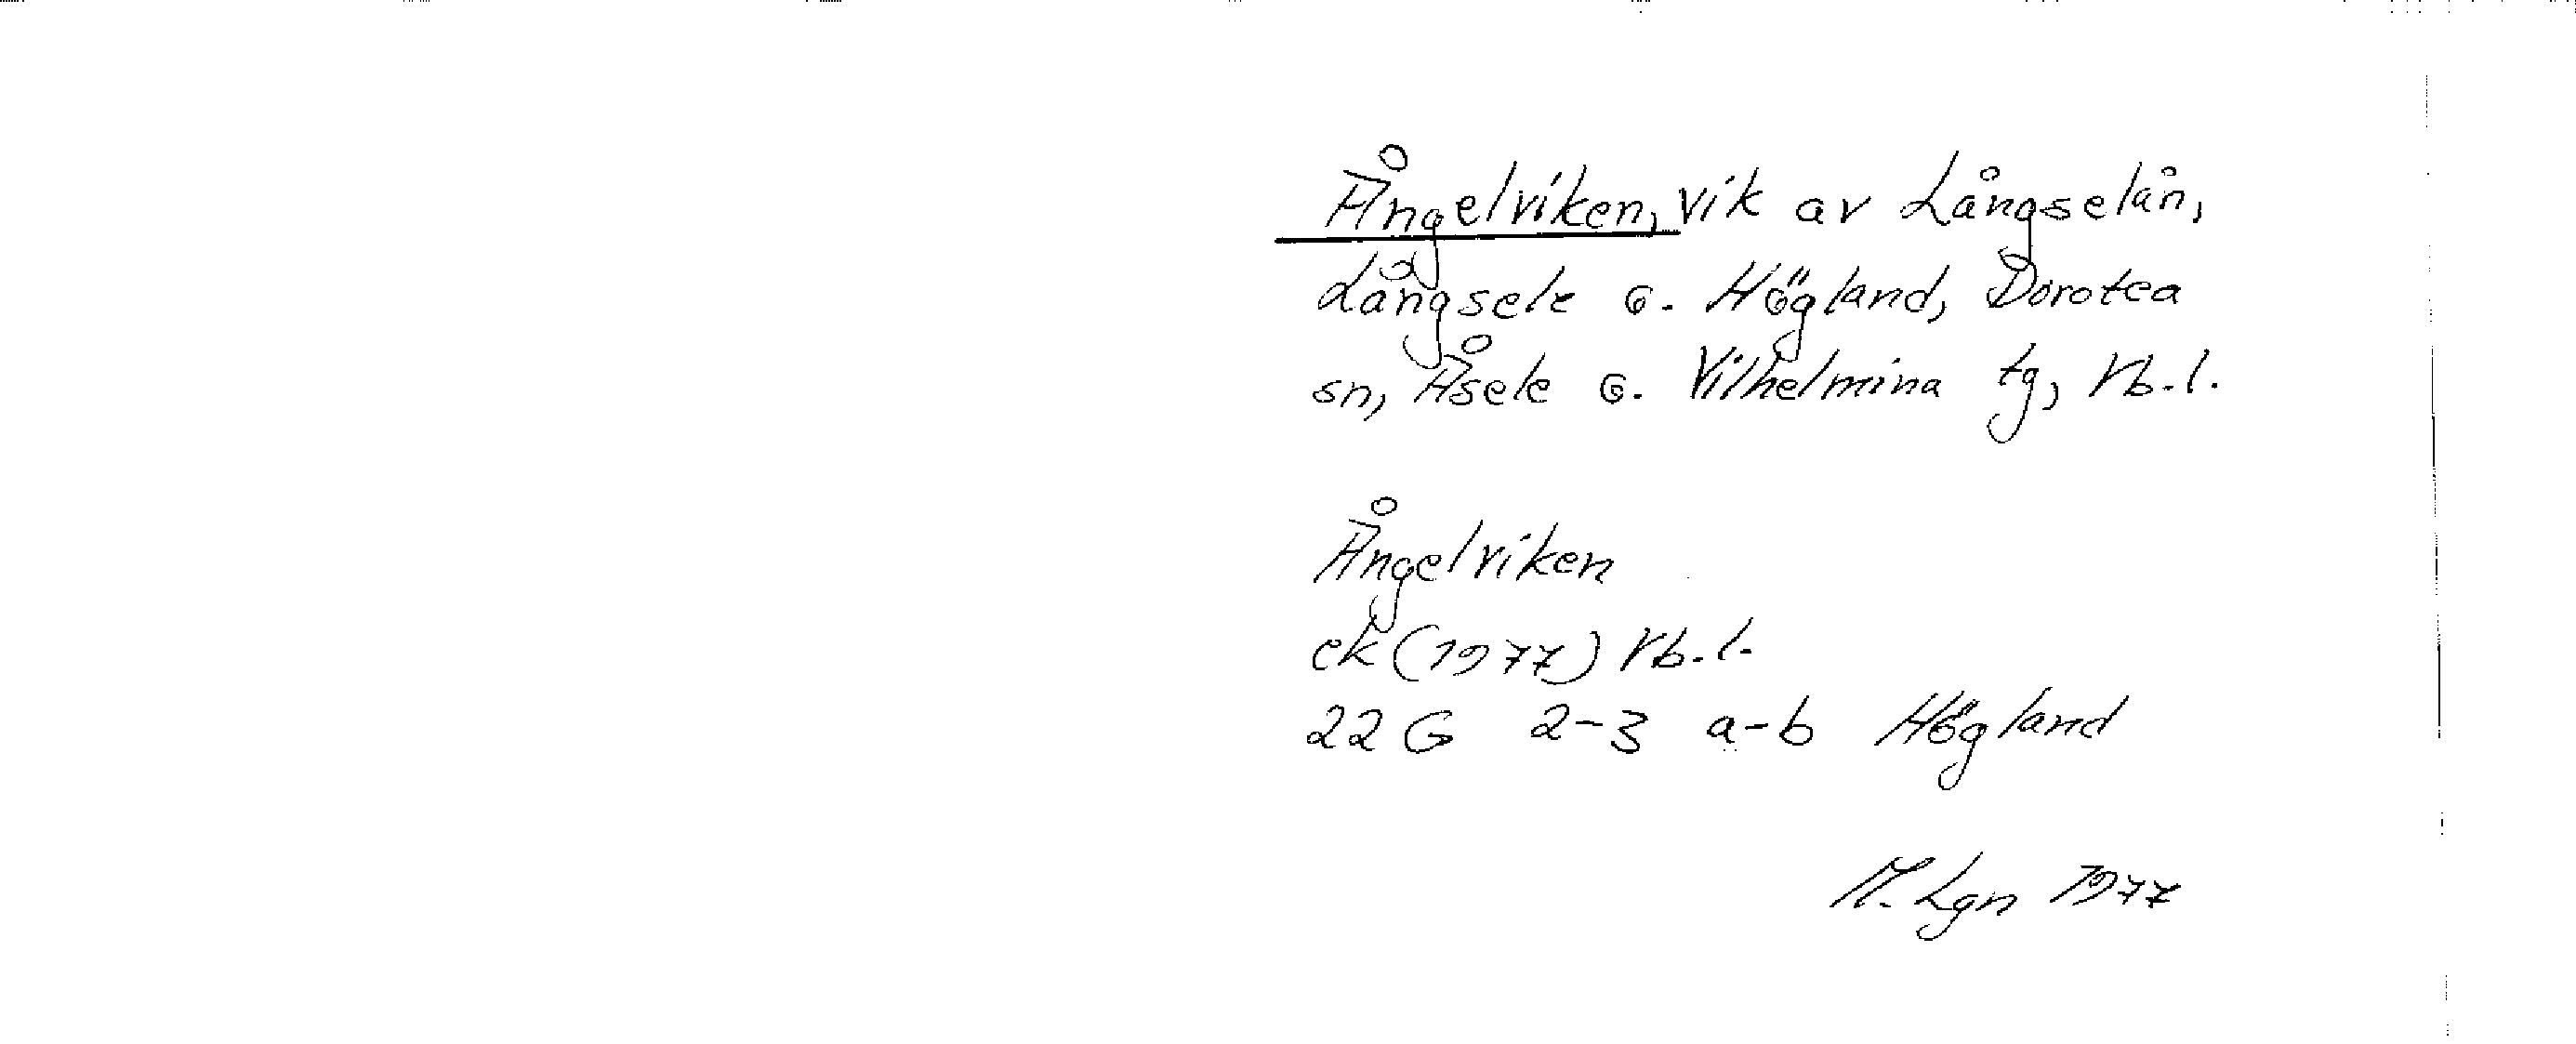 Ångelviken, vik av Långselån,
Långsele o. Högland, Dorotea
sn, Åsele o. Vilhelmina tg, Vb.l.
Ångelviken
ek (1977) Vb.l.
22 G 2-3 a-b Högland
M. Lgn 1977